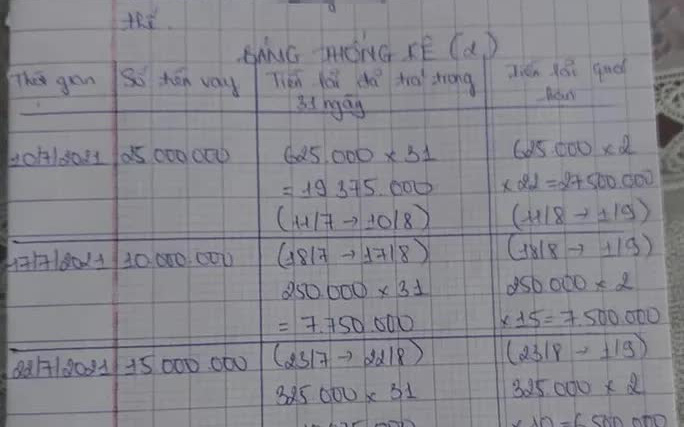 thì.
BẢNG THỐNG KÊ (2)
Thời gian | Số tiền vay | Tiền lãi đã trả trong 31 ngày | Tiền lãi quá hạn
10/7/2021 | 25.000.000 | 625.000 x 31 | 625.000 x 2
= 19 375.000 | x 22 = 27500.000
(11/7 → 10/8) | (11/8 → 1/9)
17/7/2021 | 10.000.000 | (18/7 → 17/8) | (18/8 → 1/9)
250.000 x 31 | 250.000 x 2
= 7.750.000 | x 15 = 7.500.000
22/7/2021 | 15.000.000 | (23/7 → 22/8) | (23/8 → 1/9)
325.000 x 31 | 325.000 x 2
x 10 = 6.500.000